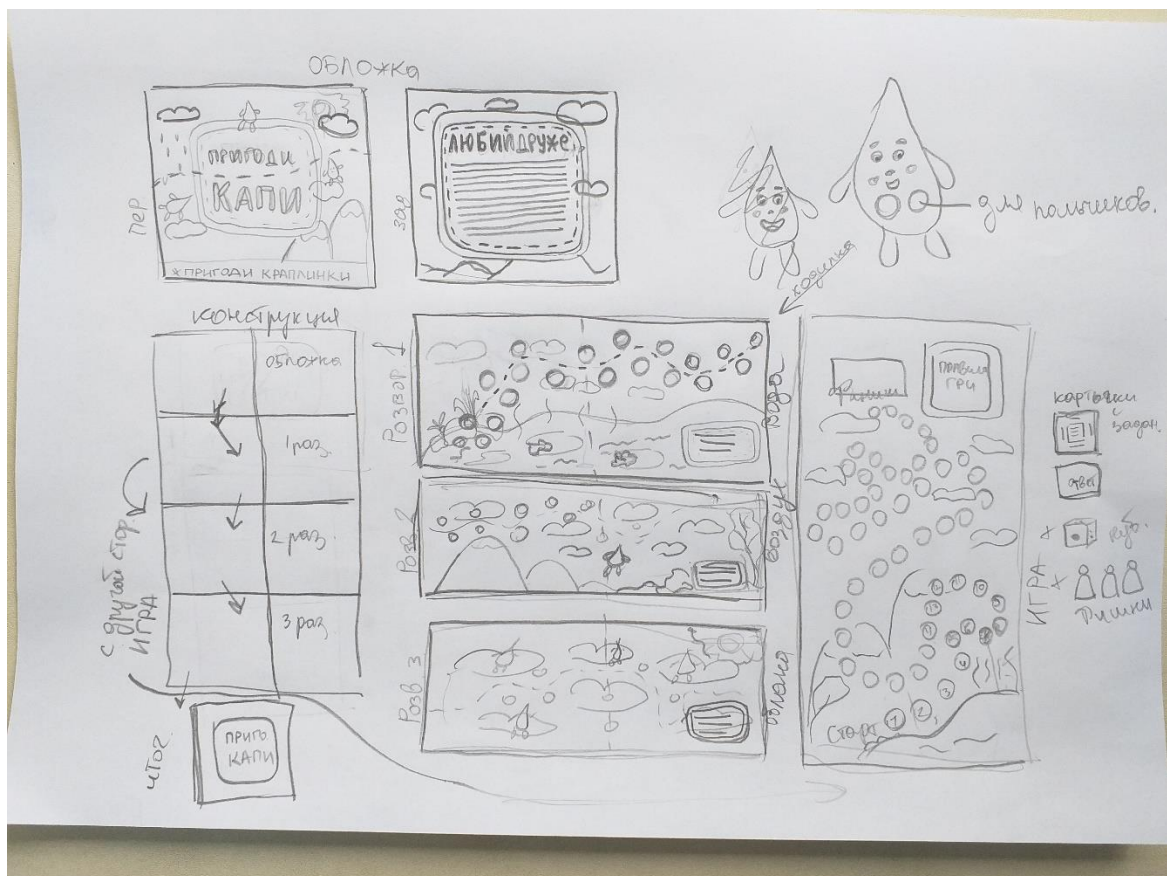 ОБЛОЖКА
пер
ПРИГОДИ
КАПИ
*ПРИГОДИ КРАПЛИНКИ
зад
ЛЮБИЙ ДРУЖЕ
для пальчиков.
ходилка
конструкция
обложка
1 раз.
2 раз.
3 раз
с другой стор.
ИГРА
итог
ПРИГО
КАПИ
Розвор 1
вода
Розв 2
воздух
Розв 3
облака
Финиш
ПРАВИЛА
ГРИ
Старт
1
2
3
4
карточки
й задан.
ИГРА
+
куб.
+
Фишки